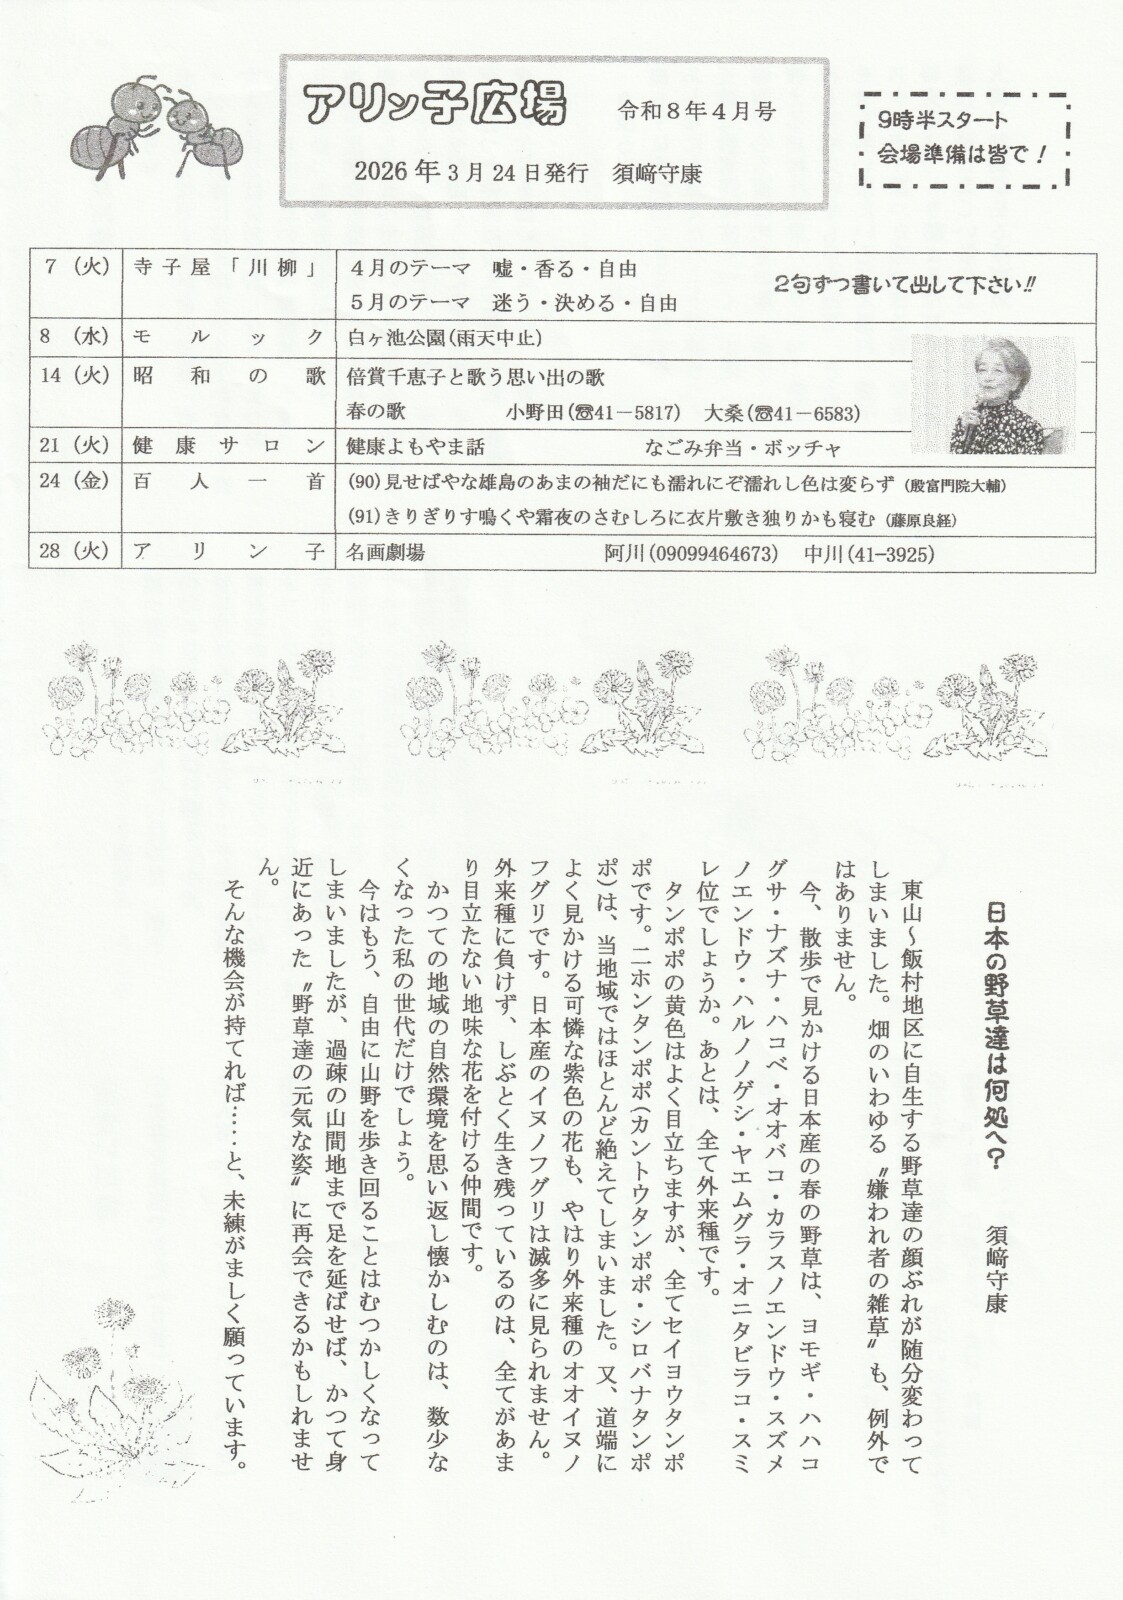 アリン子広場　令和８年４月号
2026年３月24日発行　須﨑守康
9時半スタート
会場準備は皆で！
7（火）　寺子屋「川柳」　４月のテーマ　嘘・香る・自由
５月のテーマ　迷う・決める・自由
２句ずつ書いて出して下さい!!
8（水）　モルック　白ヶ池公園(雨天中止)
14（火）　昭和の歌　倍賞千恵子と歌う思い出の歌
春の歌　小野田(☎41－5817)　大桑(☎41－6583)
21（火）　健康サロン　健康よもやま話　なごみ弁当・ボッチャ
24（金）　百人一首　(90)見せばやな雄島のあまの袖だにも濡れにぞ濡れし色は変らず（殷富門院大輔）
(91)きりぎりす鳴くや霜夜のさむしろに衣片敷き独りかも寝む（藤原良経）
28（火）　アリン子　名画劇場　阿川(09099464673)　中川(41-3925)
日本の野草達は何処へ？　須﨑守康
東山～飯村地区に自生する野草達の顔ぶれが随分変わって
しまいました。畑のいわゆる〝嫌われ者の雑草〟も、例外で
はありません。
今、散歩で見かける日本産の春の野草は、ヨモギ・ハハコ
グサ・ナズナ・ハコベ・オオバコ・カラスノエンドウ・スズメ
ノエンドウ・ハルノノゲシ・ヤエムグラ・オニタビラコ・スミ
レ位でしょうか。あとは、全て外来種です。
タンポポの黄色はよく目立ちますが、全てセイヨウタンポ
ポです。ニホンタンポポ(カントウタンポポ・シロバナタンポ
ポ)は、当地域ではほとんど絶えてしまいました。又、道端に
よく見かける可憐な紫色の花も、やはり外来種のオオイヌノ
フグリです。日本産のイヌノフグリは滅多に見られません。
外来種に負けず、しぶとく生き残っているのは、全てがあま
り目立たない地味な花を付ける仲間です。
かつての地域の自然環境を思い返し懐かしむのは、数少な
くなった私の世代だけでしょう。
今はもう、自由に山野を歩き回ることはむつかしくなって
しまいましたが、過疎の山間地まで足を延ばせば、かつて身
近にあった〝野草達の元気な姿〟に再会できるかもしれませ
ん。
そんな機会が持てれば……と、未練がましく願っています。